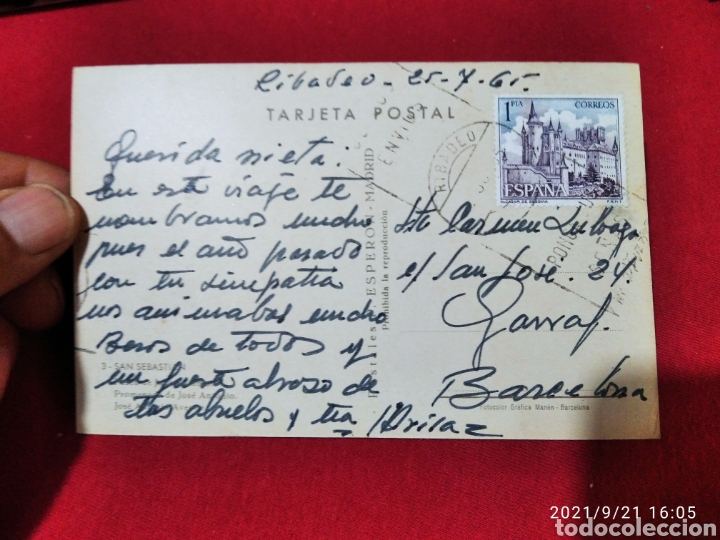 Ribadeo - 25-7-65-
TARJETA POSTAL
Querida nieta:
En este viaje te
nombramos mucho
pues el año pasado
con tu simpatia
nos animabas mucho
Besos de todos y
un fuerte abrazo de
tus abuelos y tia
3 - SAN SEBASTIAN
de José Antonio.
Postales ESPERON - MADRID
Prohibida la reproducción
1 PTA
CORREOS
ESPAÑA
ALCAZAR DE SEGOVIA
F.N.M.T.
RIBADEO
Carmen
c/ San José. 24.
Garraf.
Barcelona
Fotocolor Gráfica Manén - Barcelona
2021/9/21 16:05
todocoleccion